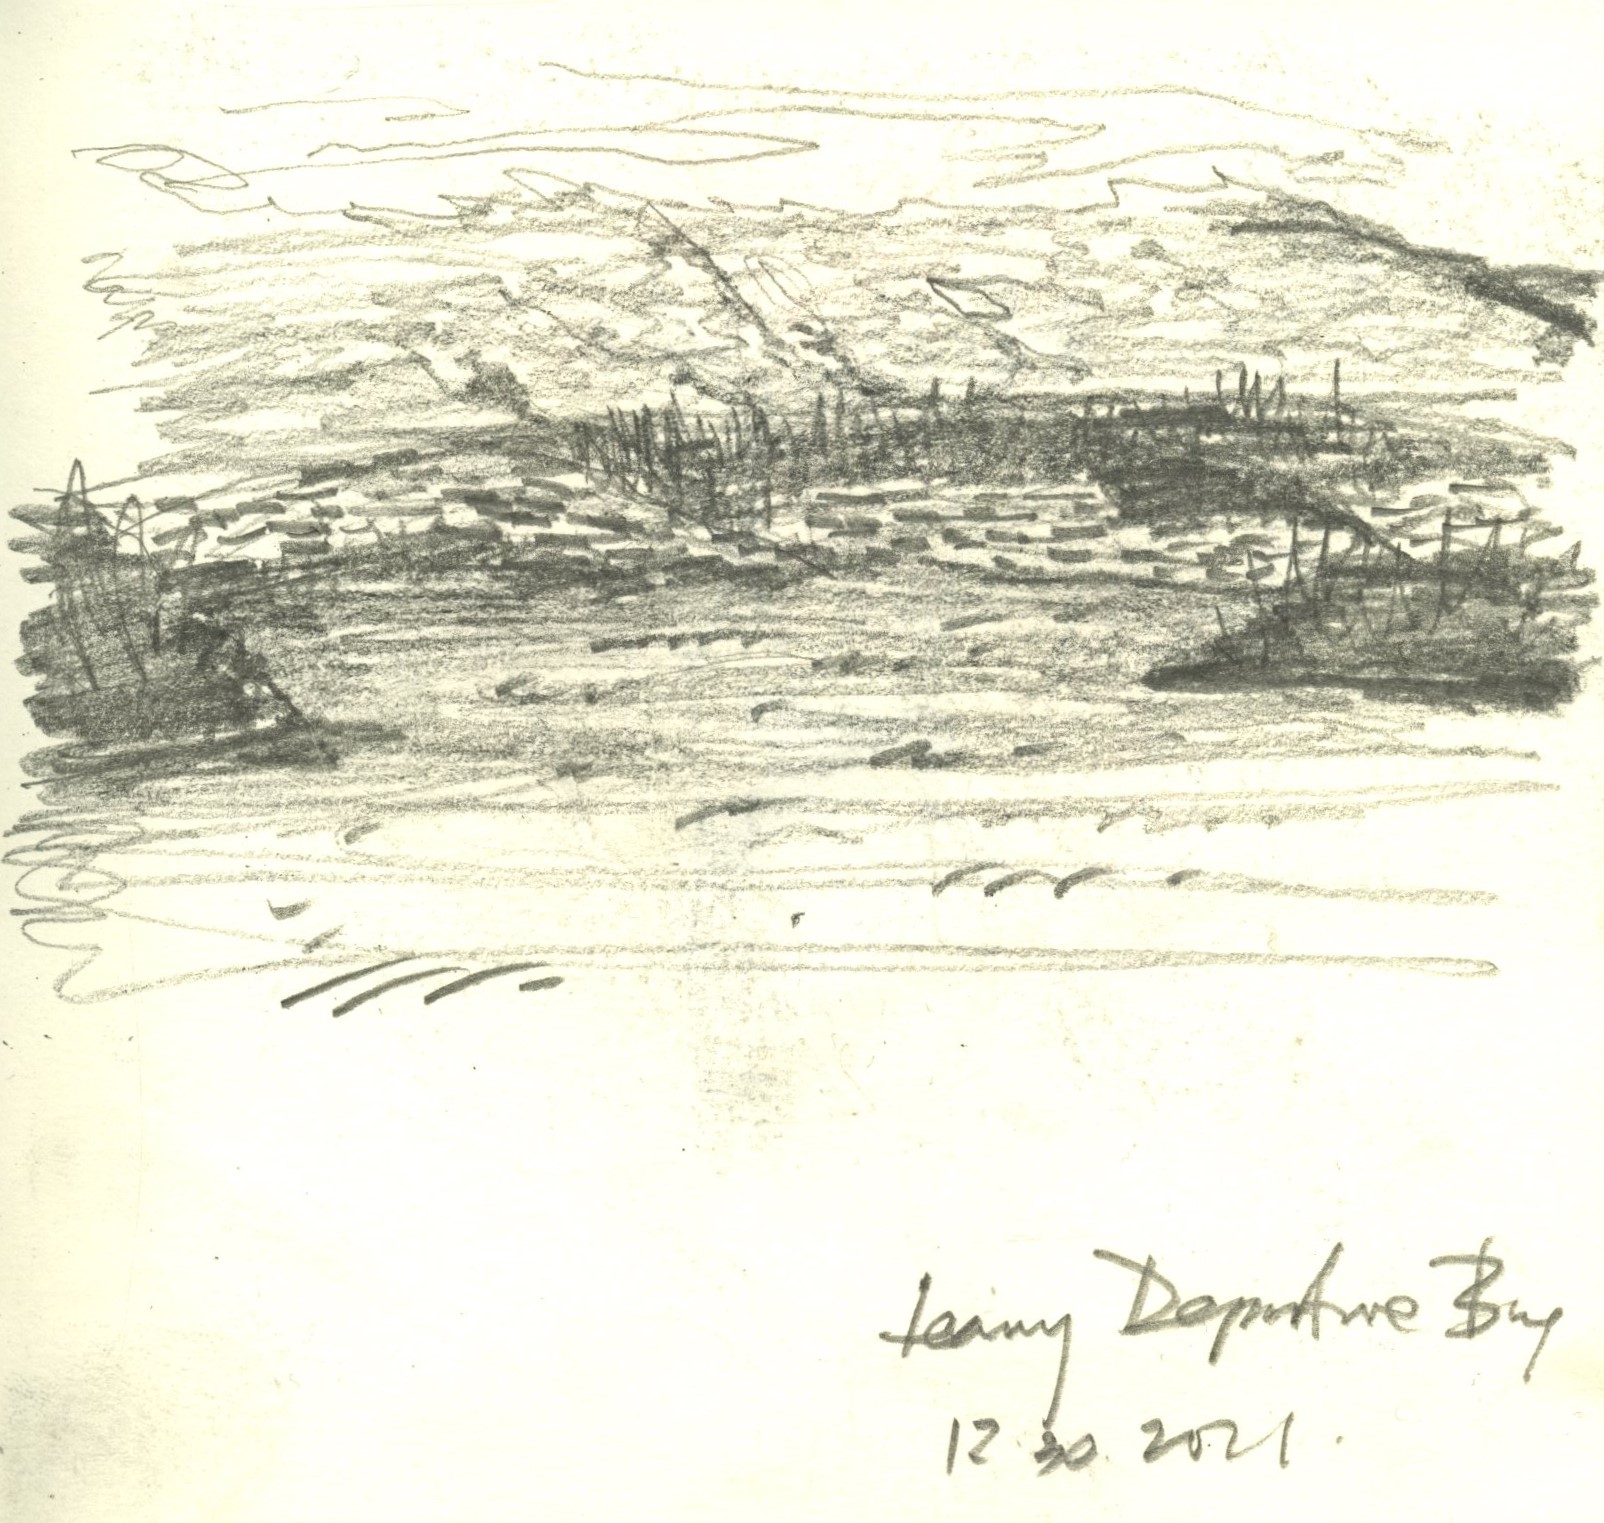 leaving Departure Bay
12 30. 2021.